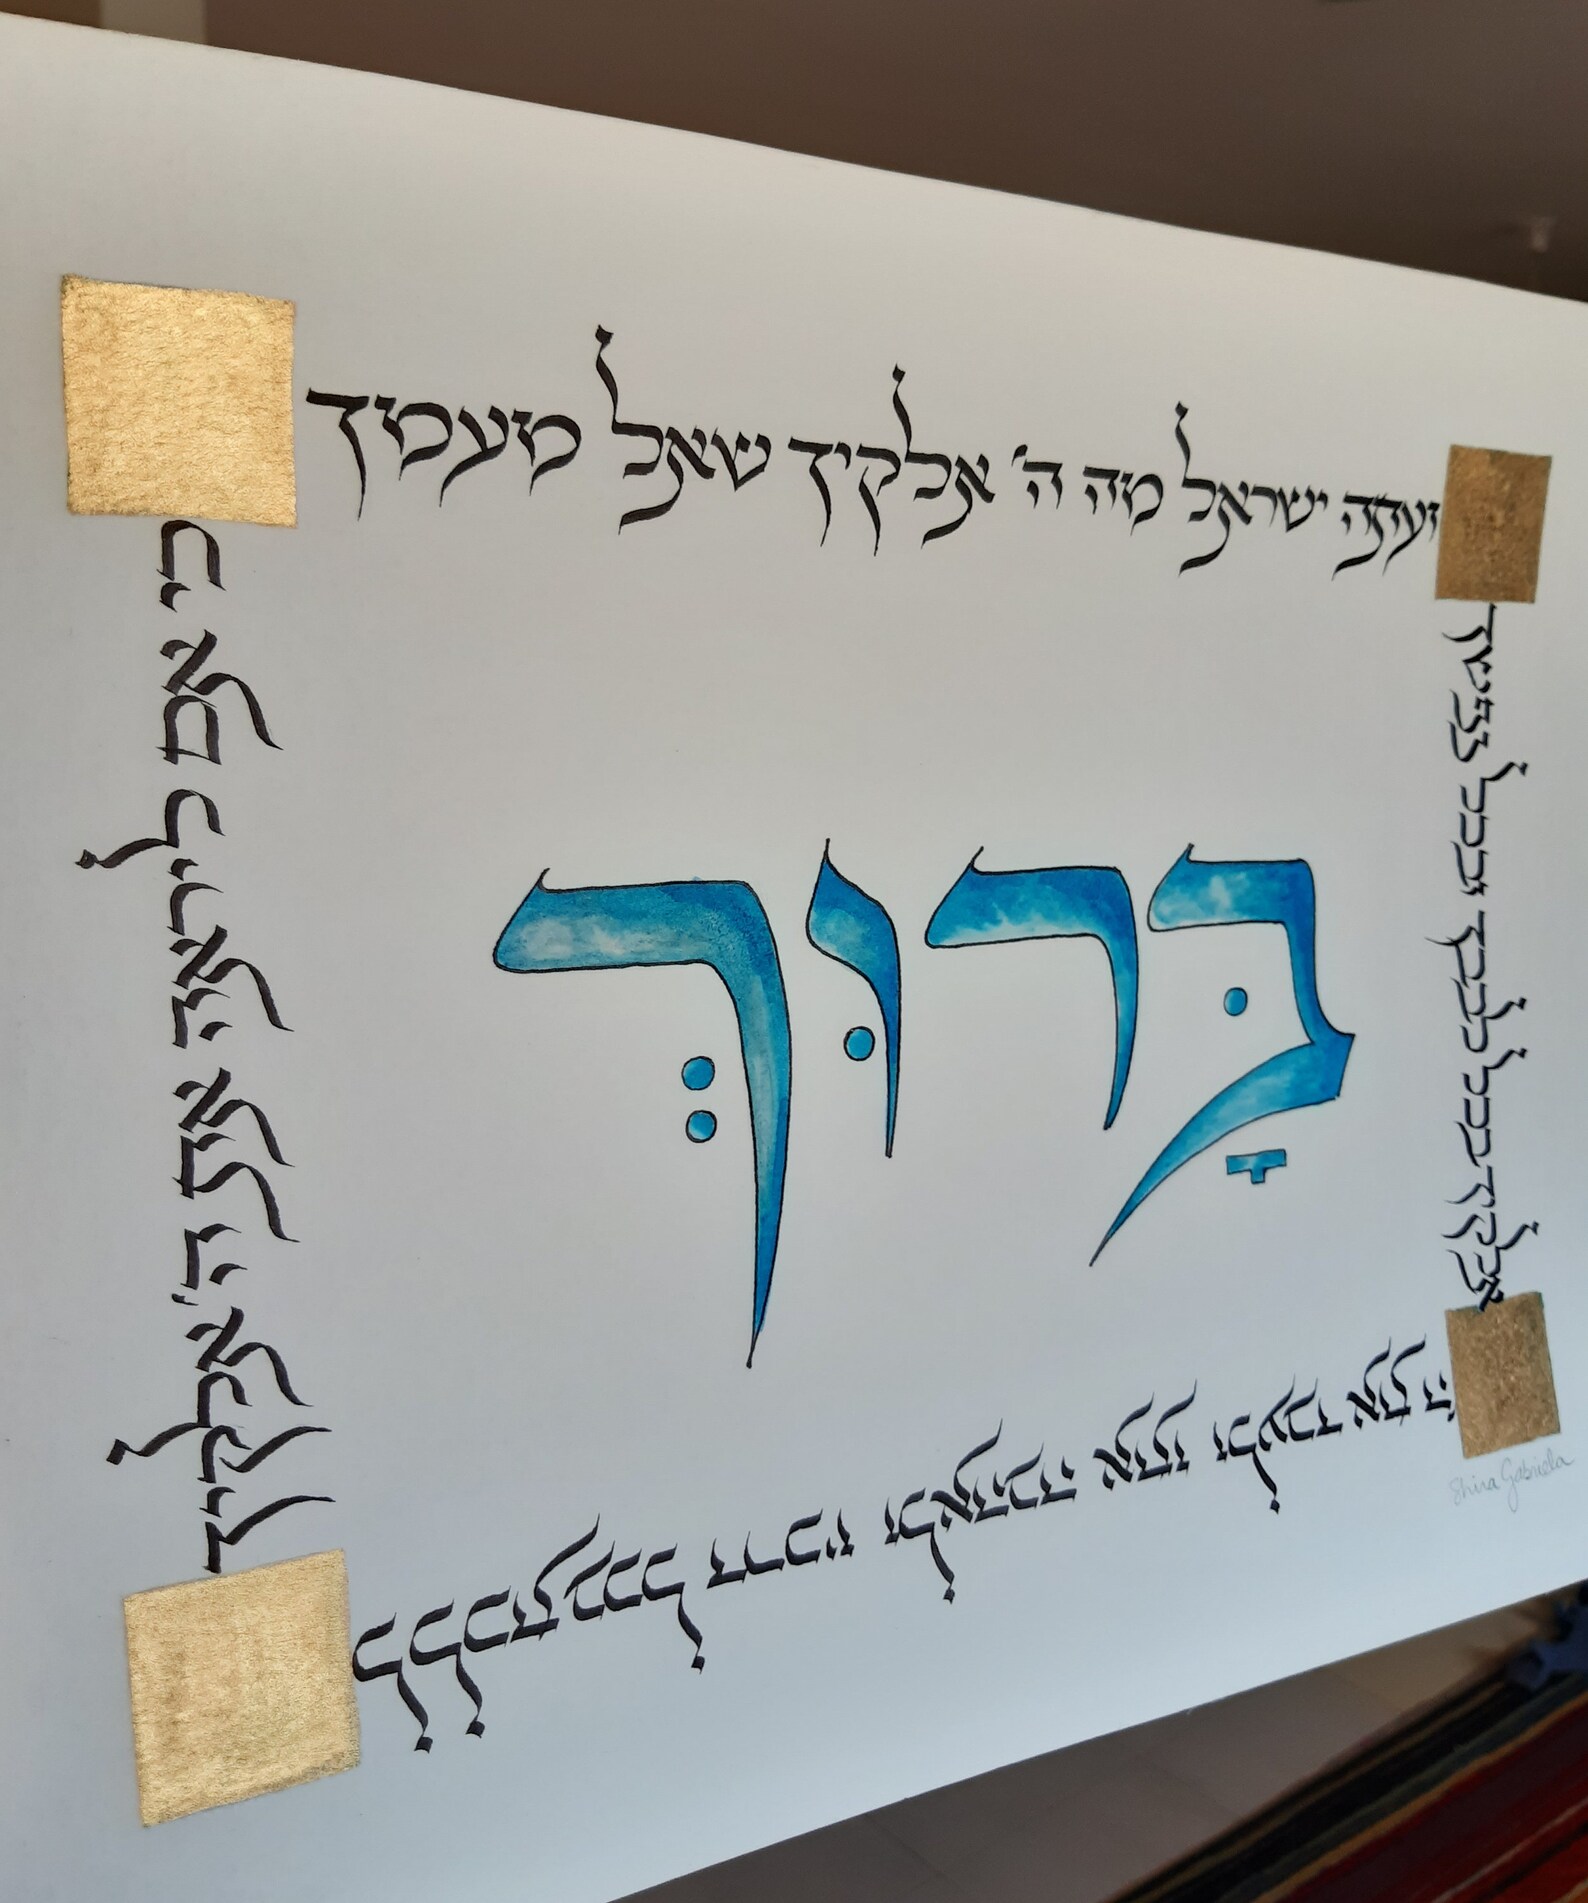 ועתה ישראל מה ה' אלקיך שאל מעמך
כי אם ליראה את ה' אלקיך
ללכת בכל דרכיו ולאהבה אתו ולעבד את ה'
אלקיך בכל לבבך ובכל נפשך
בָּרוּךְ
Shira Gabriela